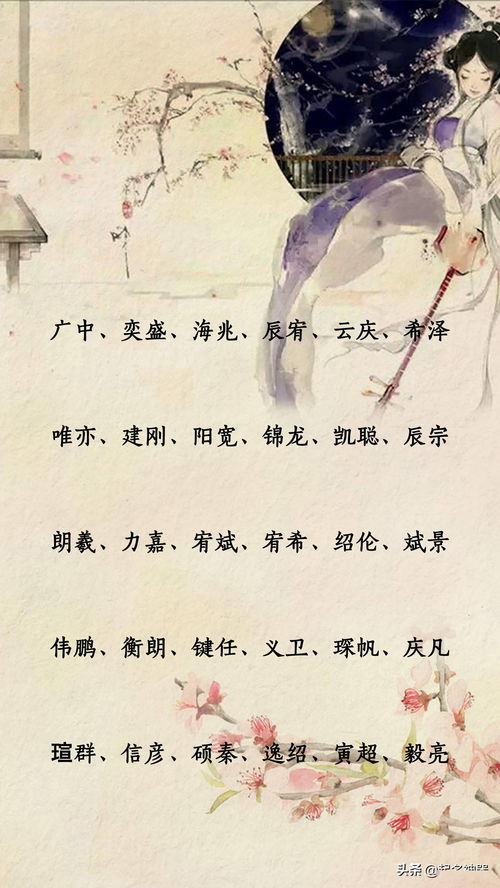 广中、奕盛、海兆、辰宥、云庆、希泽
唯亦、建刚、阳宽、锦龙、凯聪、辰宗
朗羲、力嘉、宥斌、宥希、绍伦、斌景
伟鹏、衡朗、键任、义卫、琛帆、庆凡
瑄群、信彦、硕秦、逸绍、寅超、毅亮
头条 @起名神器